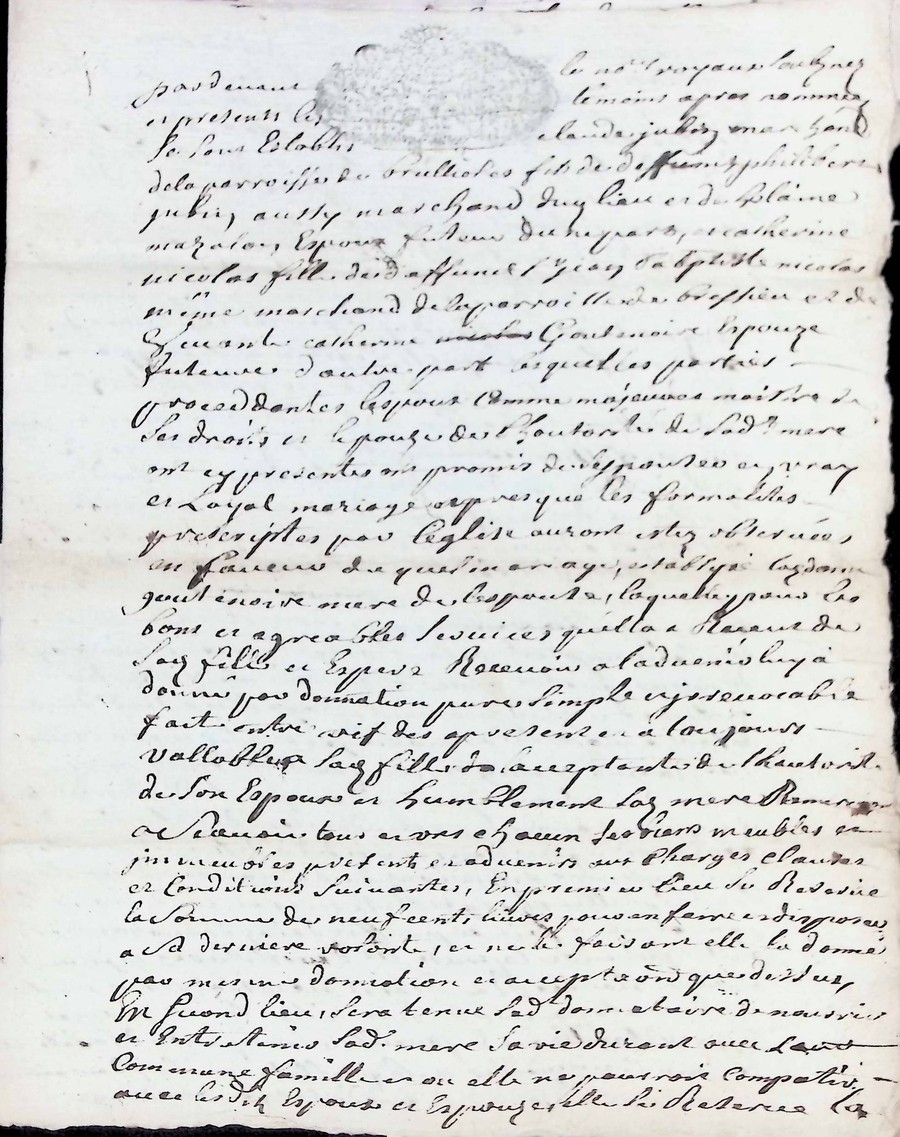 pardevant le no.re royaux soubznez
et presents les temoins apres nommez
se sont Establis claude jubin marchand
de la parroisse de brullioles fils de deffunct philibert
jubin aussy marchand dud lieu et de
Espoux futeur d'une part, et catherine
nicolas fille de deffunct Sr jean baptiste nicolas
même marchand de la parroisse de bressieu et de
vivante catherine Goutenoire Espouze
futeure d'autre part lesquelles parties
proceddantes lespoux comme majeure maitre de
ses droits et lepouze de lhautorité de sad.e mere
ont cy presentes ont promis de sepouser en vray
et Loyal mariage apres que les formalités
prescriptes par leglise auront estez observées
en faveur du quel mariage, establye lad dame
goutenoire mere de lespouze, laquelle pour les
bons et agreables services quelle a Receus de
sad fille et Espere Recevoir a ladvenir luy a
donné par donnation pure simple et jrrevocable
fait entre vif des apresent et a toujours
vallable a sad fille acceptante de lhautorité
de son Espoux et humblement sad mere Remerciant
a scavoir tous et uns chacun ses biens meubles et
jmmeubles presents et advenirs aux Charges Clauses
et Conditions suivantes, En premier lieu se Reserve
la somme de neuf cents livres pour en faire et disposer
a sa derniere volonté, et ne le faisant elle la donne
par mesme donnation et acceptaôn que dessus,
En second lieu, sera tenue sad donnataire de nourrir
et Entretenir sad. mere sa vie durant avec
Commune famille et ou elle ne pourroit Compativir
avec lesdits Espoux et Espouze, elle se Reserve la